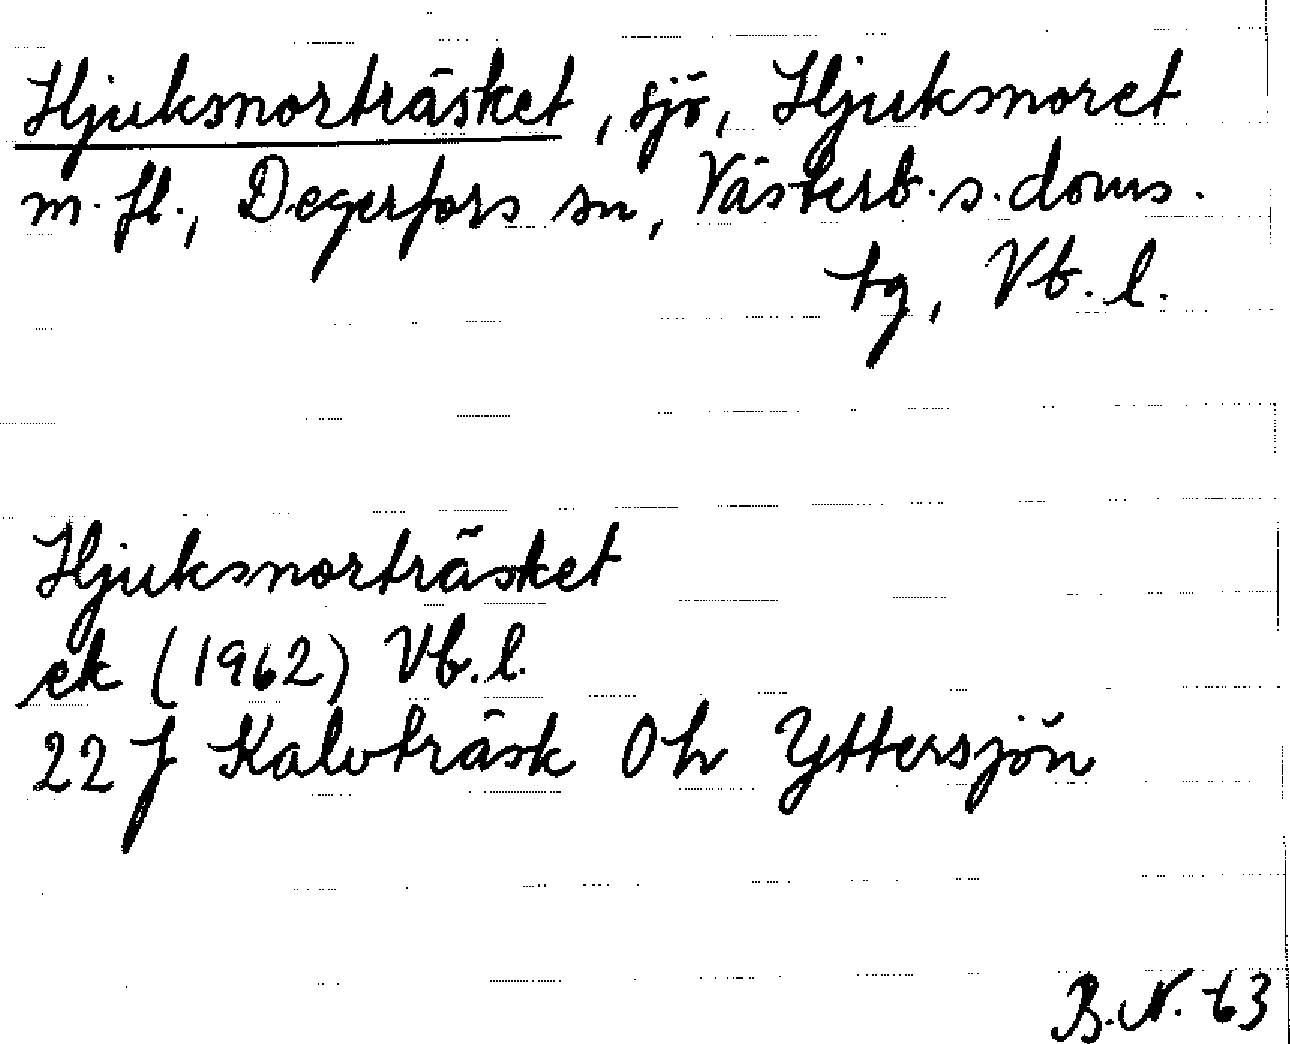 Hjuksmorträsket, sjö, Hjuksmoret
m. fl., Degerfors sn, Västerb. s. doms.
tg, Vb. l.
Hjuksmorträsket
ek (1962) Vb. l.
22 J Kalvträsk 0 h Yttersjön
B. N. 63